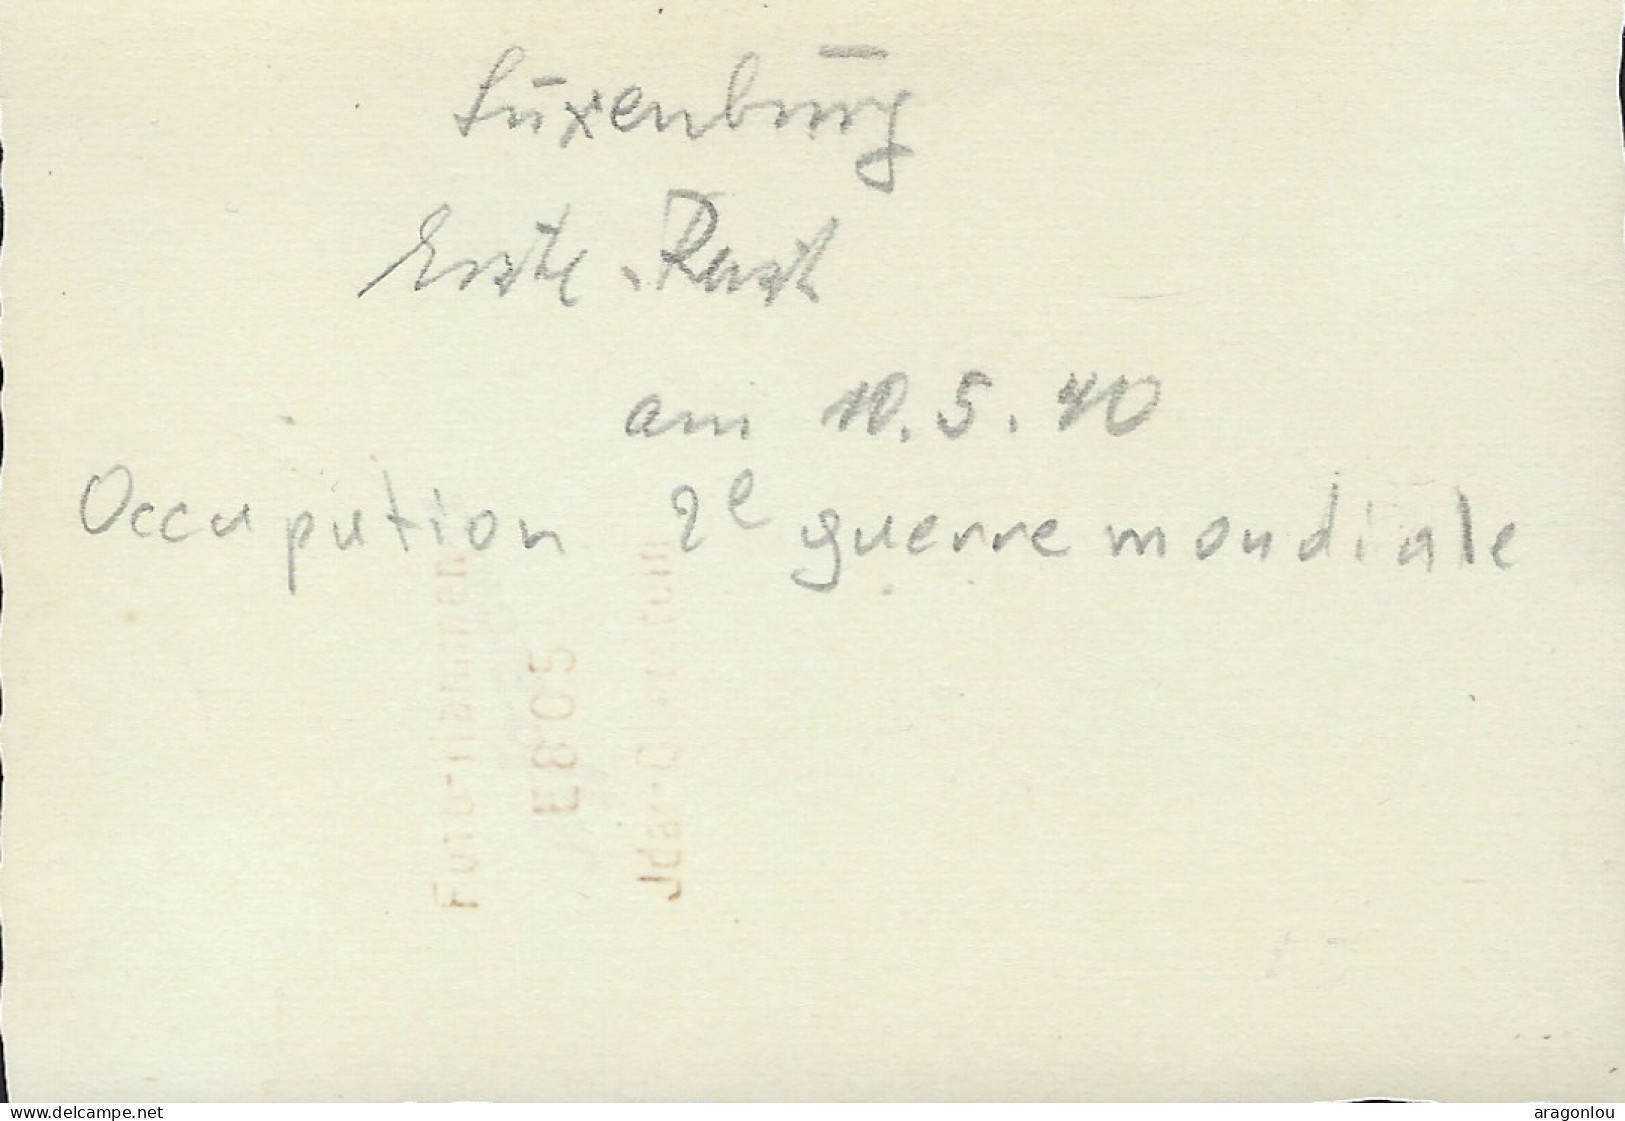 Luxenburg
Erste Rast
am 10.5.40
Occupation 2e guerre mondiale
E805
www.delcampe.net
aragonlou